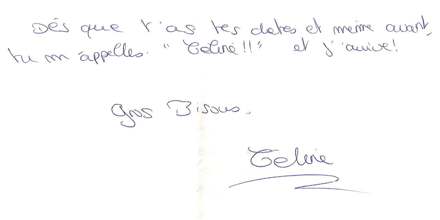 Dés que t'as tes dates et même avant,
tu m'appelles. "Celine!!" et j'arrive!
Gros Bisous.
Celine